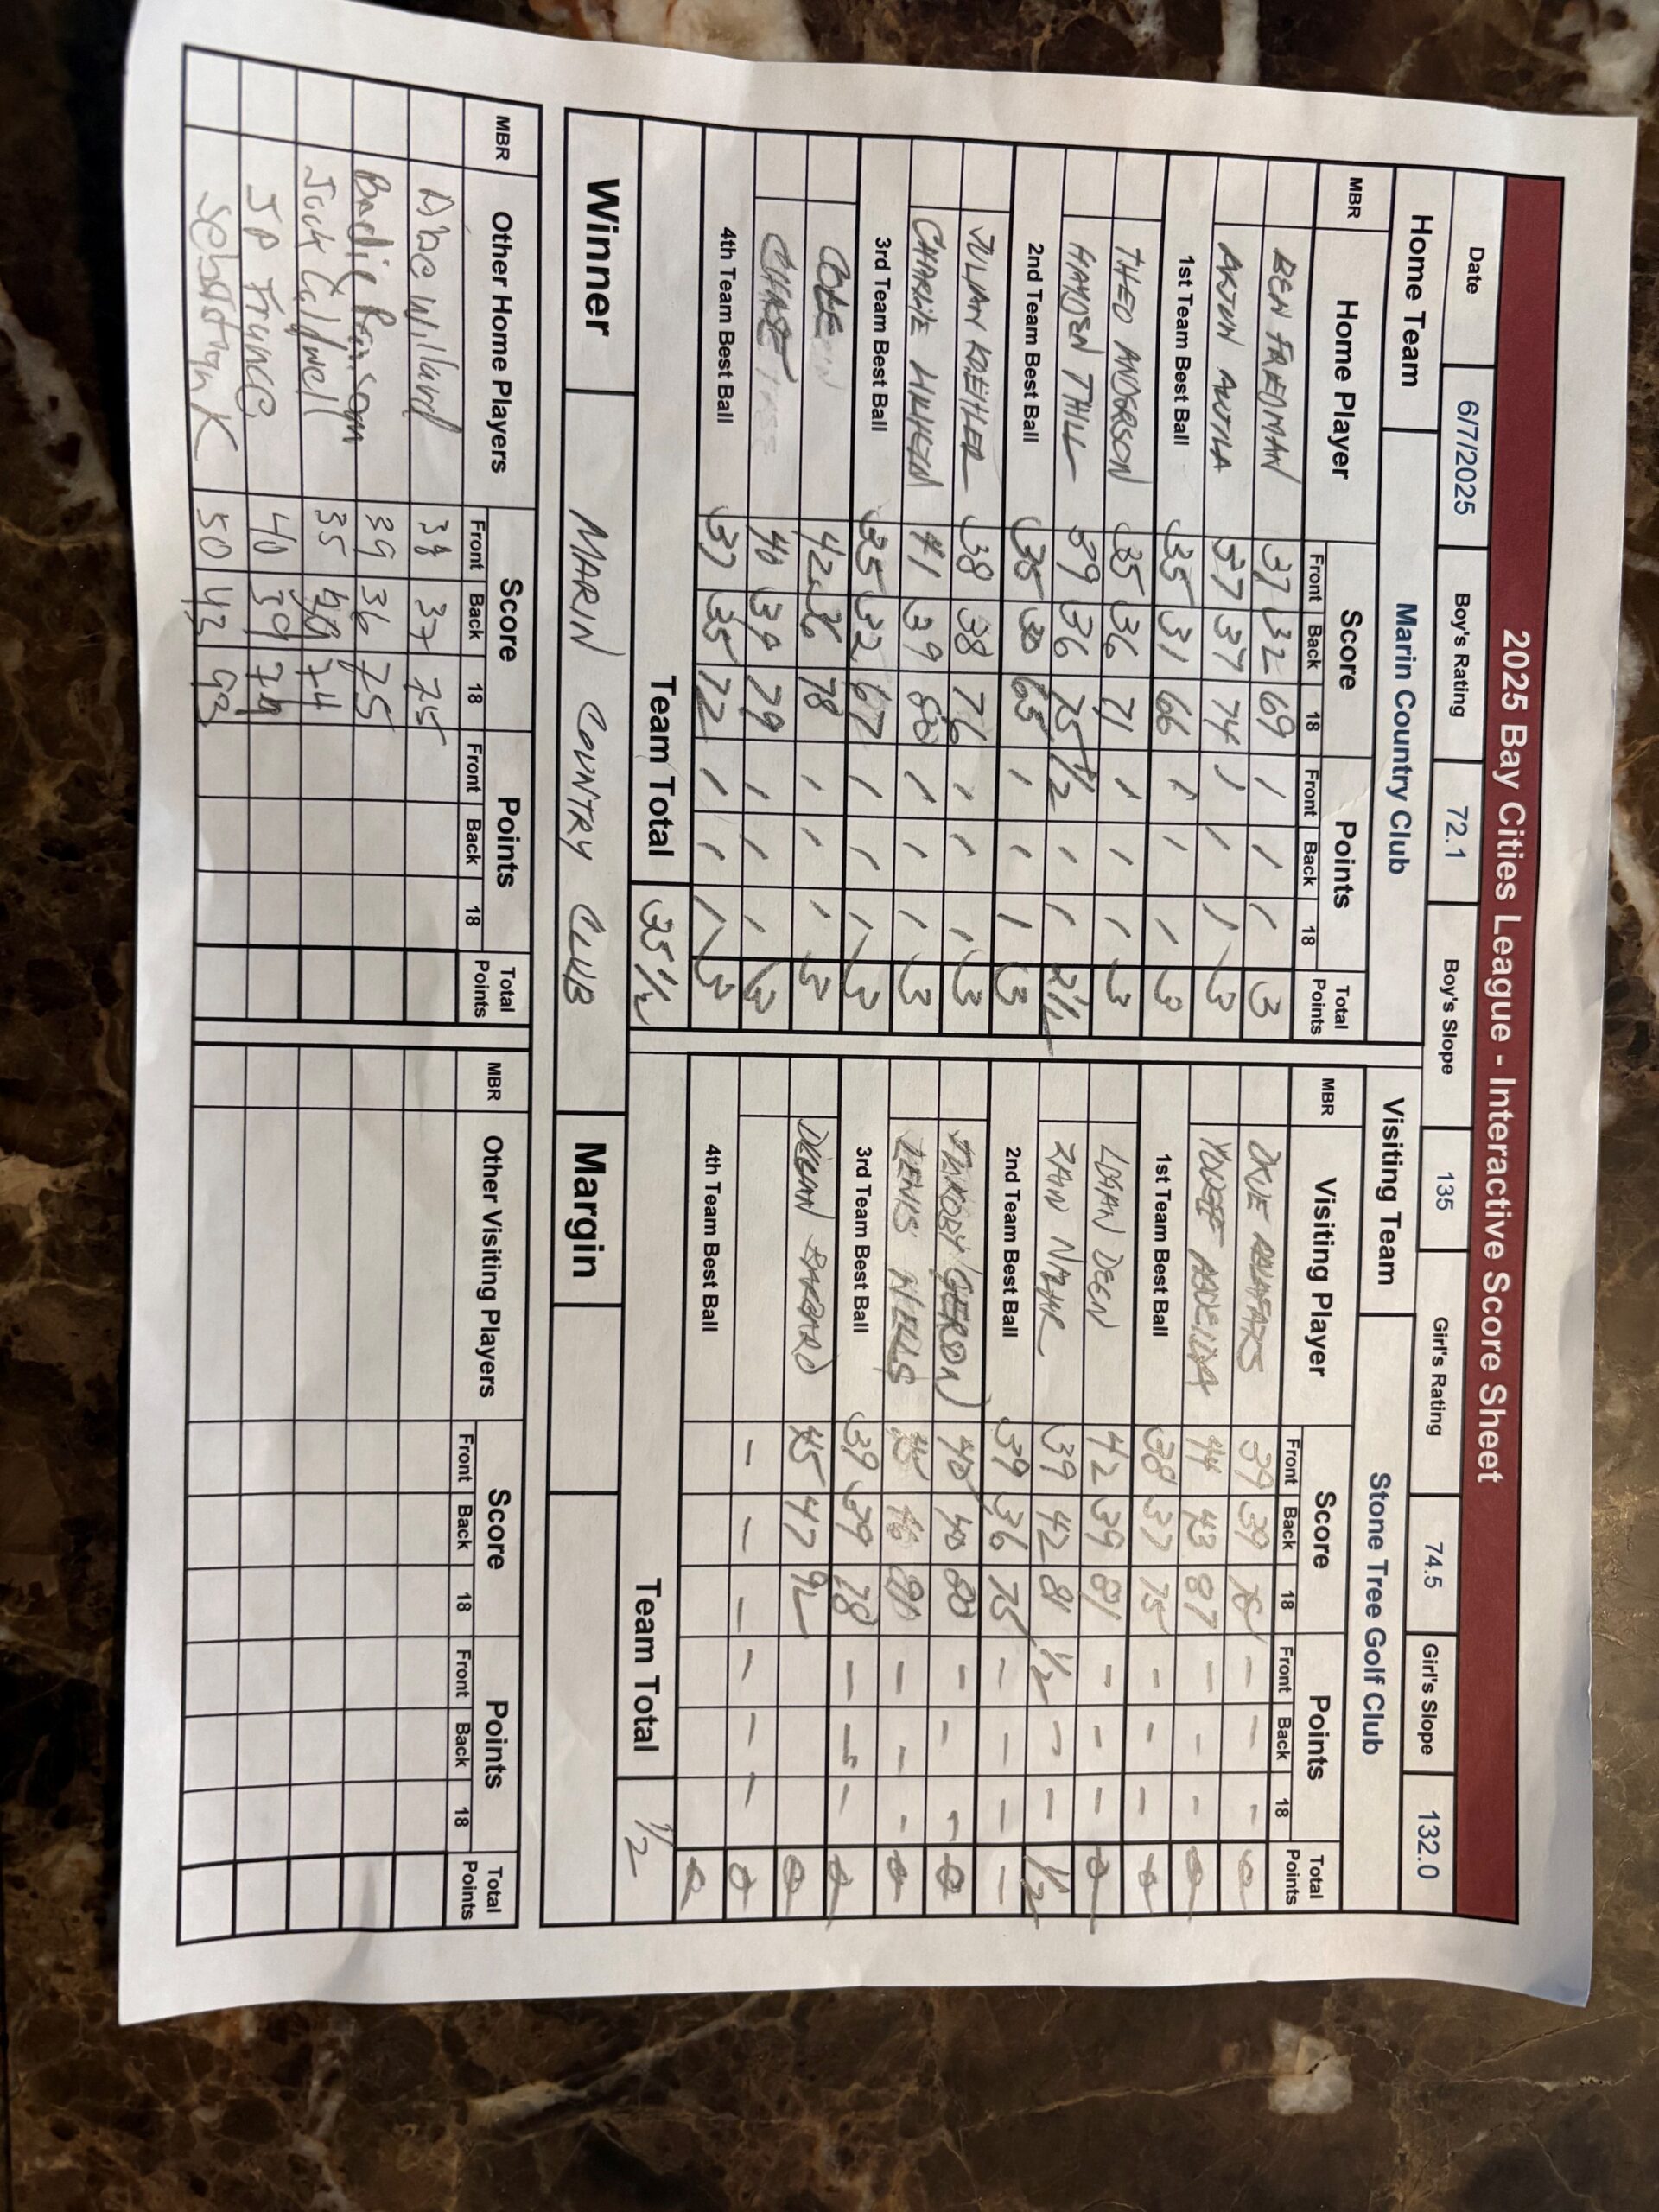 2025 Bay Cities League - Interactive Score Sheet
Date 6/7/2025 Boy's Rating 72.1 Boy's Slope 135 Girl's Rating 74.5 Girl's Slope 132.0
Home Team Marin Country Club Visiting Team Stone Tree Golf Club
MBR Home Player Score Points Total Points MBR Visiting Player Score Points Total Points
Front Back 18 Front Back 18 Front Back 18 Front Back 18
BEN FREEDMAN 37 32 69 1 1 1 3 39 39 78 - - - 0
37 37 74 1 1 1 3 44 43 87 - - - 0
1st Team Best Ball 35 31 66 1 1 1 3 1st Team Best Ball 38 37 75 - - - 0
THEO ANDERSON 35 36 71 1 1 1 3 LOGAN DEEN 42 39 81 - - - 0
HAYDEN THILL 39 36 75 1/2 1 1 2 1/2 39 42 81 1/2 - - 1/2
2nd Team Best Ball 35 30 65 1 1 1 3 2nd Team Best Ball 39 36 75 - - - -
JULIAN KREITLER 38 38 76 1 1 1 3 40 40 80 - - - 0
CHARLIE 41 39 80 1 1 1 3 WELLS - - - 0
3rd Team Best Ball 35 32 67 1 1 1 3 3rd Team Best Ball 39 39 78 - - - 0
COLE 42 36 78 1 1 1 3 45 47 92 0
CHASE 40 39 79 1 1 1 3 - - - - - - 0
4th Team Best Ball 37 35 72 1 1 1 3 4th Team Best Ball 0
Team Total 35 1/2 Team Total 1/2
Winner MARIN COUNTRY CLUB Margin
MBR Other Home Players Score Points Total Points MBR Other Visiting Players Score Points Total Points
Front Back 18 Front Back 18 Front Back 18 Front Back 18
Abe Willard 38 37 75
Bodie Ransom 39 36 75
Jack Caldwell 35 74
JP France 40 39 79
Sebastian K 50 43 93